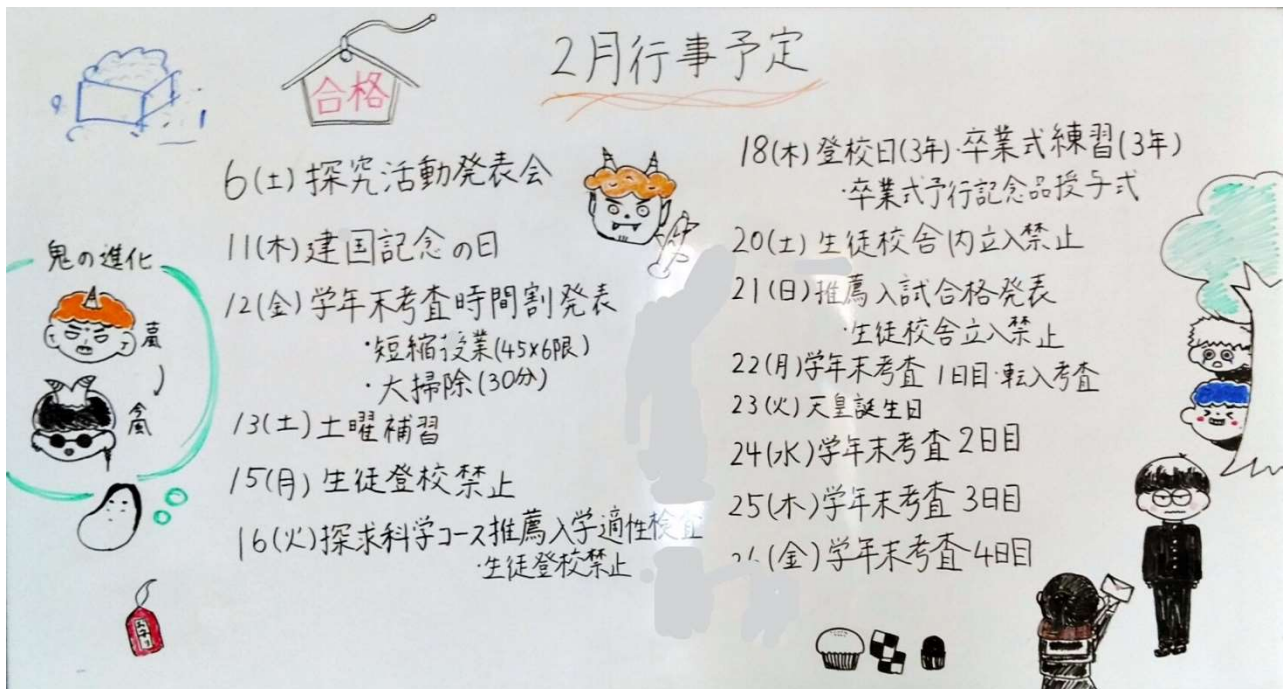 合格
2月行事予定
6(土)探究活動発表会
11(木)建国記念の日
12(金)学年末考査時間割発表
・短縮授業(45×6限)
・大掃除(30分)
13(土)土曜補習
15(月)生徒登校禁止
16(火)探求科学コース推薦入学適性検査
・生徒登校禁止
18(木)登校日(3年)・卒業式練習(3年)
・卒業式予行記念品授与式
20(土)生徒校舎内立入禁止
21(日)推薦入試合格発表
・生徒校舎立入禁止
22(月)学年末考査 1日目・転入考査
23(火)天皇誕生日
24(水)学年末考査 2日目
25(木)学年末考査 3日目
(金)学年末考査 4日目
鬼の進化